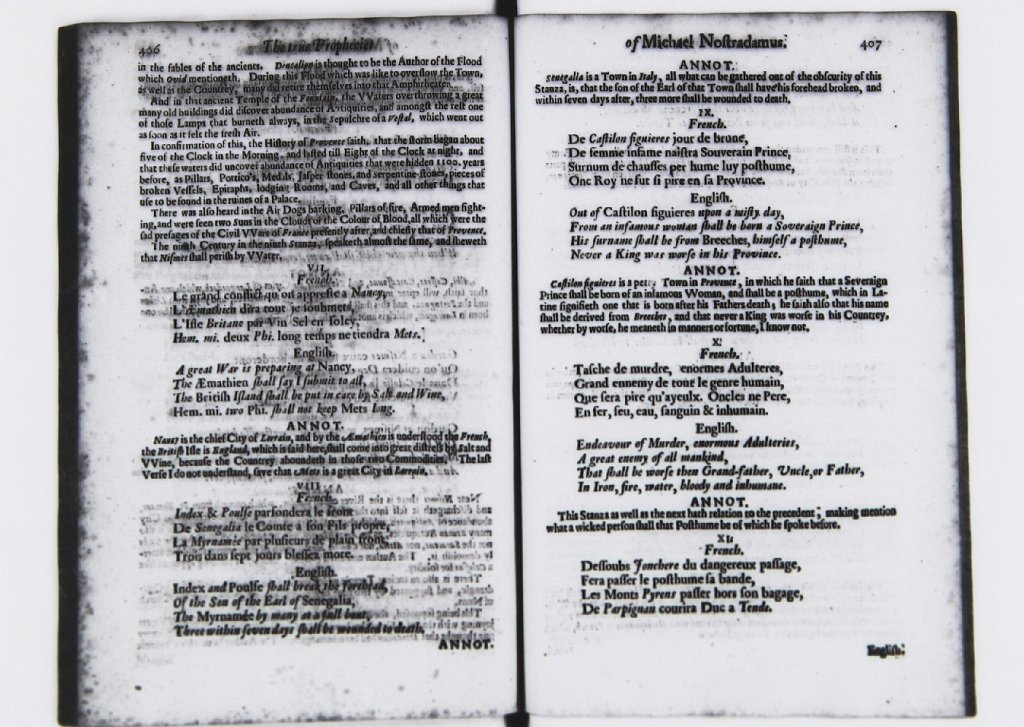 406 The true Prophecies
in the fables of the ancients. Deucalion is thought to be the Author of the Flood
which Ovid mentioneth. During this Flood which was like to overflow the Town,
as well as the Countrey, many did retire themselves into that Amphitheater.
And in that ancient Temple of the Fountain, the VVaters overthrowing a great
many old buildings did discover abundance of Antiquities, and amongst the rest one
of those Lamps that burneth always, in the Sepulchre of a Vestal, which went out
as soon as it felt the fresh Air.
In confirmation of this, the History of Provence saith, that the storm began about
five of the Clock in the Morning, and lasted till Eight of the Clock at night, and
that these waters did uncover abundance of Antiquities that were hidden 1100. years
before, as Pillars, Portico's, Medals, Jasper stones, and serpentine-stones, pieces of
broken Vessels, Epitaphs, lodging Rooms, and Caves, and all other things that
use to be found in the ruines of a Palace.
There was also heard in the Air Dogs barking, Pillars of fire, Armed men fight-
ing, and were seen two Suns in the Clouds of the Colour of Blood, all which were the
sad presages of the Civil VVars of France presently after, and chiefly that of Provence,
The ninth Century in the ninth Stanza, speaketh almost the same, and sheweth
that Nismes shall perish by VVater.
VII.
French.
Le grand conflict qu'on appreste a Nancy,
L'Æmathien dira tout je soubmets,
L'Isle Britane par Vin Sel en soley,
Hem. mi. deux Phi. long temps ne tiendra Mets.
English.
A great War is preparing at Nancy,
The Æmathien shall say I submit to all,
The British Island shall be put in care by Salt and Wine,
Hem. mi. two Phi. shall not keep Mets long.
ANNOT.
Nancy is the chief City of Lorrain, and by the Æmathien is understood the French,
the British Isle is England, which is said here, shall come into great distress by Salt and
VVine, because the Countrey aboundeth in those two Commodities. The last
Verse I do not understand, save that Mets is a great City in Lorrain.
VIII.
French.
Index & Poulse parfondera le front
De Senegalia le Comte a son Fils propre,
La Myrnamée par plusieurs de plain front,
Trois dans sept jours blessez more.
English.
Index and Poulse shall break the forehead,
Of the Son of the Earl of Senegalia,
The Myrnamée by many at a full bout,
Three within seven days shall be wounded to death.
ANNOT.
of Michael Nostradamus. 407
ANNOT.
Senegalia is a Town in Italy, all what can be gathered out of the obscurity of this
Stanza, is, that the son of the Earl of that Town shall have his forehead broken, and
within seven days after, three more shall be wounded to death.
IX.
French.
De Castilon figuieres jour de brune,
De femme infame naistra Souverain Prince,
Surnum de chausses per hume luy posthume,
Onc Roy ne fut si pire en sa Province.
English.
Out of Castilon figuieres upon a misty day,
From an infamous woman shall be born a Soveraign Prince,
His surname shall be from Breeches, himself a posthume,
Never a King was worse in his Province.
ANNOT.
Castilon figuieres is a petty Town in Provence, in which he saith that a Severaign
Prince shall be born of an infamous Woman, and shall be a posthume, which in La-
tine signifieth one that is born after his Fathers death; he saith also that his name
shall be derived from Breeches, and that never a King was worse in his Countrey,
whether by worse, he meaneth in manners or fortune, I know not.
X.
French.
Tasche de murdre, enormes Adulteres,
Grand ennemy de tout le genre humain,
Que sera pire qu'ayeulx. Oncles ne Pere,
En fer, feu, eau, sanguin & inhumain.
English.
Endeavour of Murder, enormous Adulteries,
A great enemy of all mankind,
That shall be worse then Grand-father, Uncle, or Father,
In Iron, fire, water, bloody and inhumane.
ANNOT.
This Stanza as well as the next hath relation to the precedent; making mention
what a wicked person shall that Posthume be of which he spoke before.
XI.
French.
Dessoubs Jonchere du dangereux passage,
Fera passer le posthume sa bande,
Les Monts Pyrens passer hors son bagage,
De Parpignan courira Duc a Tende.
English.